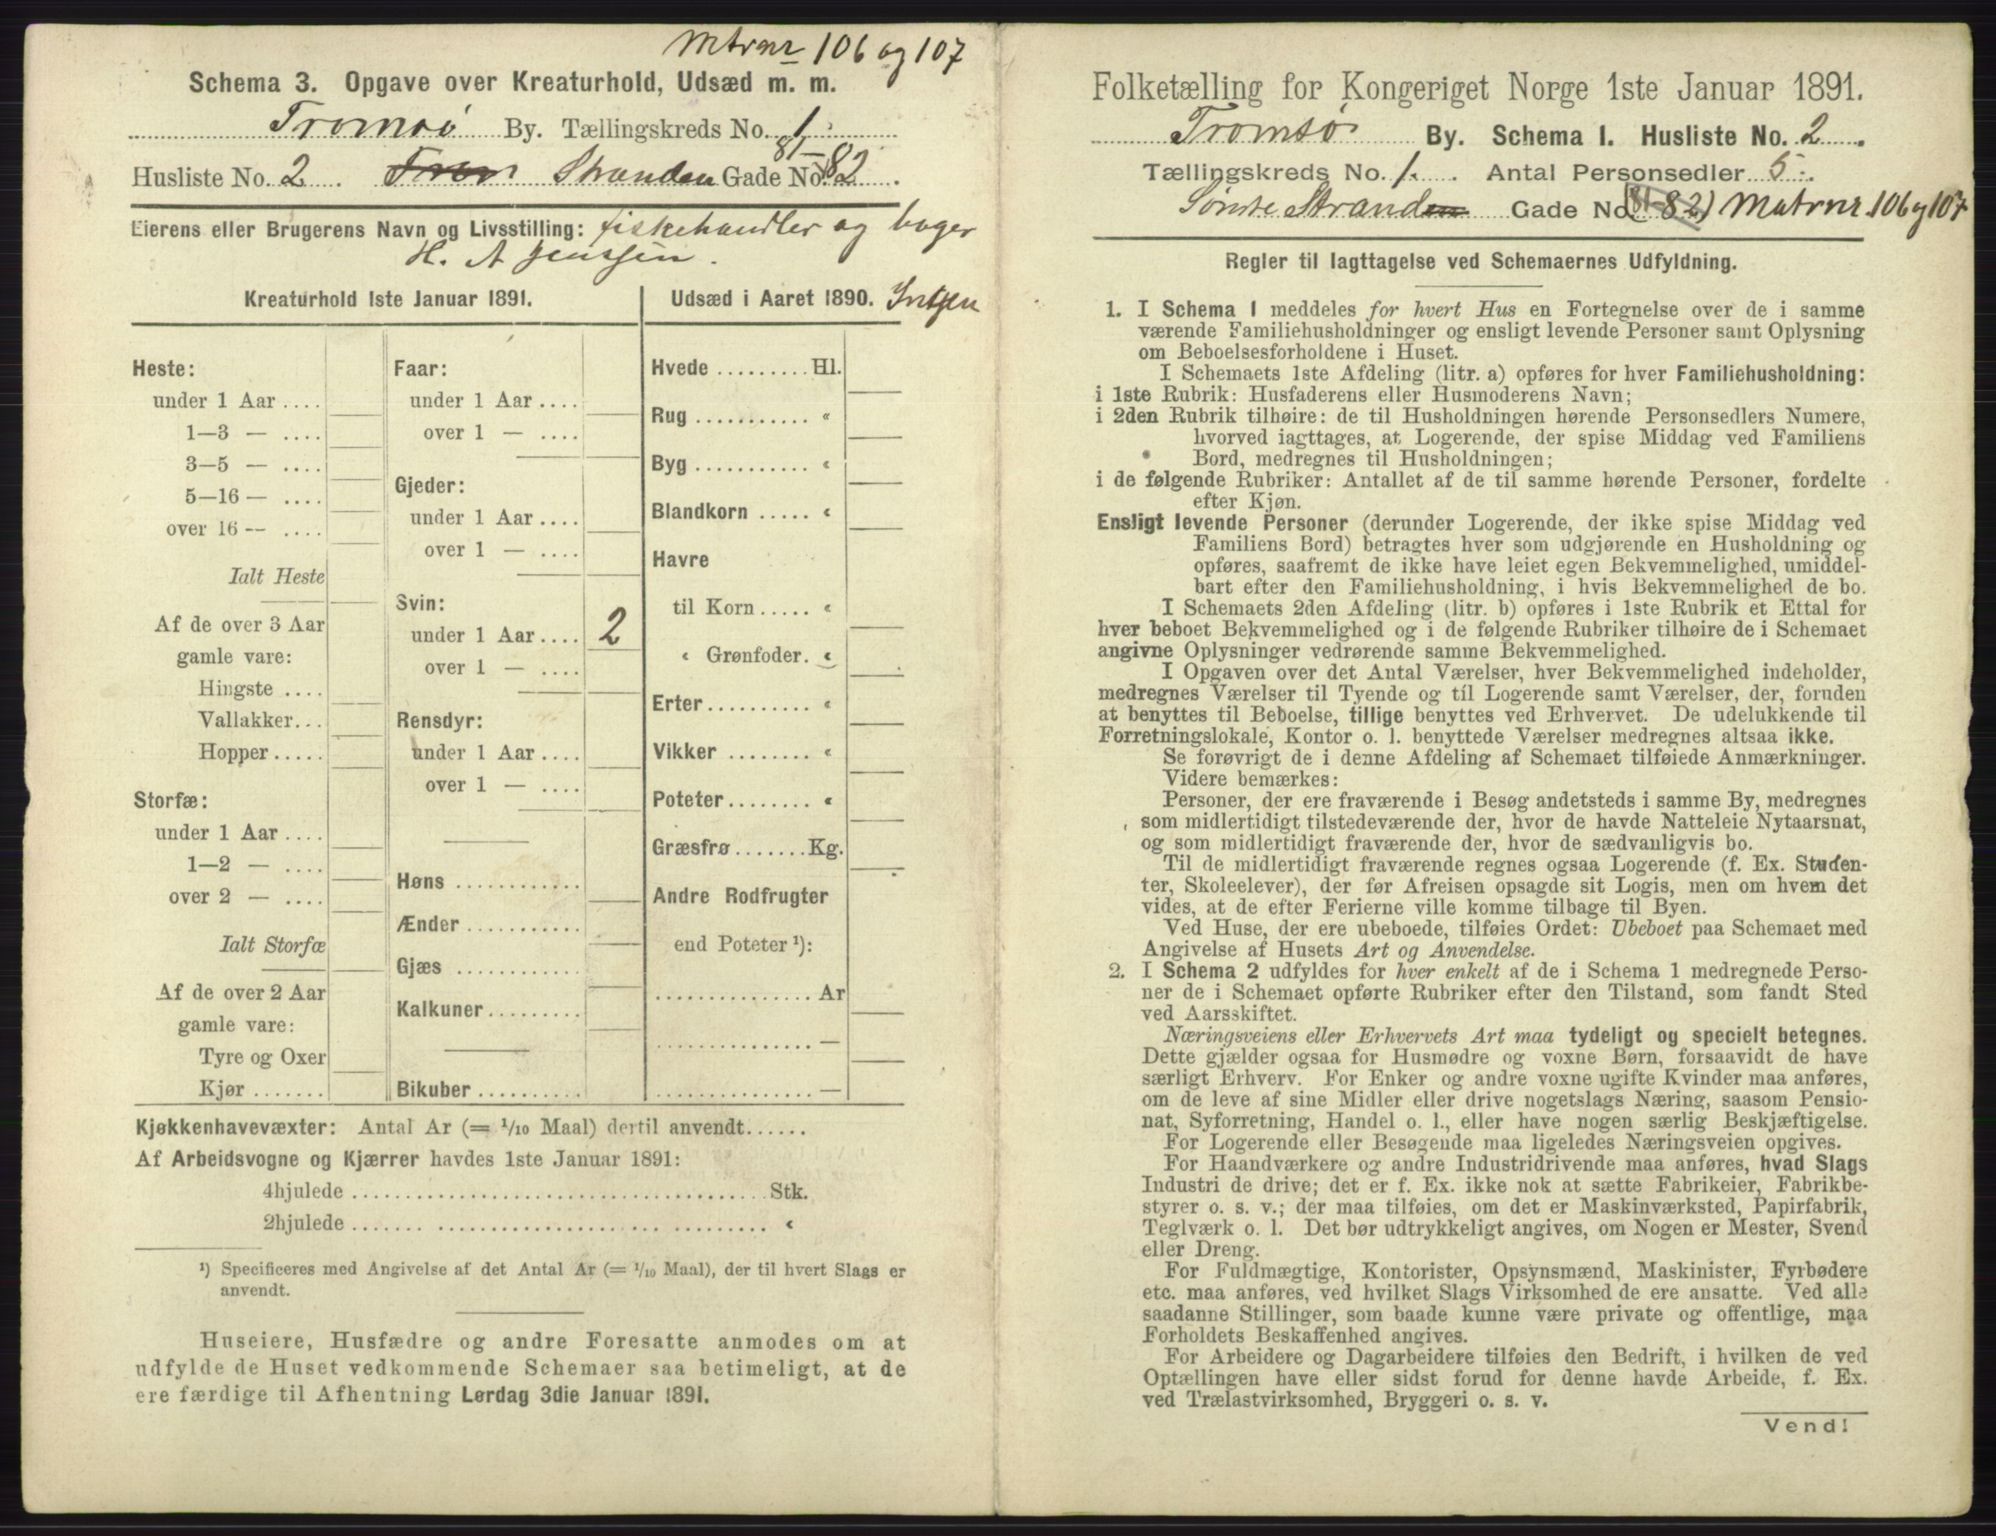 Mtrnr 106 og 107
Schema 3. Opgave over Kreaturhold, Udsæd m. m.
Tromsö By. Tællingskreds No. 1.
Husliste No. 2 Stranden Gade No. 81–82.
Eierens eller Brugerens Navn og Livsstilling: fiskehandler og bager
H. A Jenssen.
Kreaturhold 1ste Januar 1891.
Heste:
under 1 Aar ....
1—3 — ....
3—5 — ....
5—16 — ....
over 16 — ....
Ialt Heste
Af de over 3 Aar
gamle vare:
Hingste ....
Vallakker...
Hopper.....
Storfæ:
under 1 Aar ....
1—2 — ....
over 2 — ....
Ialt Storfæ
Af de over 2 Aar
gamle vare:
Tyre og Oxer
Kjør .......
Faar:
under 1 Aar ....
over 1 — ....
Gjeder:
under 1 Aar ....
over 1 — ....
Svin:
under 1 Aar .... 2
over 1 — ....
Rensdyr:
under 1 Aar ....
over 1 — ....
Høns ............
Ænder ...........
Gjæs ............
Kalkuner.........
Bikuber..........
Udsæd i Aaret 1890. Intjen
Hvede .........Hl.
Rug ........... "
Byg ........... "
Blandkorn ..... "
Havre
til Korn ..... "
" Grønfoder. "
Erter.......... "
Vikker ........ "
Poteter........ "
Græsfrø.......Kg.
Andre Rodfrugter
end Poteter ¹):
............... Ar
............... —
............... —
Kjøkkenhavevæxter: Antal Ar (= 1/10 Maal) dertil anvendt......
Af Arbeidsvogne og Kjærrer havdes 1ste Januar 1891:
4hjulede .....................................Stk.
2hjulede ..................................... "
¹) Specificeres med Angivelse af det Antal Ar (= 1/10 Maal), der til hvert Slags er
anvendt.
Huseiere, Husfædre og andre Foresatte anmodes om at
udfylde de Huset vedkommende Schemaer saa betimeligt, at de
ere færdige til Afhentning Lørdag 3die Januar 1891.
Folketælling for Kongeriget Norge 1ste Januar 1891.
Tromsö By. Schema 1. Husliste No. 2.
Tællingskreds No. 1. Antal Personsedler 5.
Söndre Stranden Gade No. (81-82) Matrnr. 106 og 107
Regler til Iagttagelse ved Schemaernes Udfyldning.
1. I Schema 1 meddeles for hvert Hus en Fortegnelse over de i samme
værende Familiehusholdninger og ensligt levende Personer samt Oplysning
om Beboelsesforholdene i Huset.
I Schemaets 1ste Afdeling (litr. a) opføres for hver Familiehusholdning:
i 1ste Rubrik: Husfaderens eller Husmoderens Navn;
i 2den Rubrik tilhøire: de til Husholdningen hørende Personsedlers Numere,
hvorved iagttages, at Logerende, der spise Middag ved Familiens
Bord, medregnes til Husholdningen;
i de følgende Rubriker: Antallet af de til samme hørende Personer, fordelte
efter Kjøn.
Ensligt levende Personer (derunder Logerende, der ikke spise Middag ved
Familiens Bord) betragtes hver som udgjørende en Husholdning og
opføres, saafremt de ikke have leiet egen Bekvemmelighed, umiddel-
bart efter den Familiehusholdning, i hvis Bekvemmelighed de bo.
I Schemaets 2den Afdeling (litr. b) opføres i 1ste Rubrik et Ettal for
hver beboet Bekvemmelighed og i de følgende Rubriker tilhøire de i Schemaet
angivne Oplysninger vedrørende samme Bekvemmelighed.
I Opgaven over det Antal Værelser, hver Bekvemmelighed indeholder,
medregnes Værelser til Tyende og til Logerende samt Værelser, der, foruden
at benyttes til Beboelse, tillige benyttes ved Erhvervet. De udelukkende til
Forretningslokale, Kontor o. l. benyttede Værelser medregnes altsaa ikke.
Se forøvrigt de i denne Afdeling af Schemaet tilføiede Anmærkninger.
Videre bemærkes:
Personer, der ere fraværende i Besøg andetsteds i samme By, medregnes
som midlertidigt tilstedeværende der, hvor de havde Natteleie Nytaarsnat,
og som midlertidigt fraværende der, hvor de sædvanligvis bo.
Til de midlertidigt fraværende regnes ogsaa Logerende (f. Ex. Studen-
ter, Skoleelever), der før Afreisen opsagde sit Logis, men om hvem det
vides, at de efter Ferierne ville komme tilbage til Byen.
Ved Huse, der ere ubeboede, tilføies Ordet: Ubeboet paa Schemaet med
Angivelse af Husets Art og Anvendelse.
2. I Schema 2 udfyldes for hver enkelt af de i Schema 1 medregnede Perso-
ner de i Schemaet opførte Rubriker efter den Tilstand, som fandt Sted
ved Aarsskiftet.
Næringsveiens eller Erhvervets Art maa tydeligt og specielt betegnes.
Dette gjælder ogsaa for Husmødre og voxne Børn, forsaavidt de have
særligt Erhverv. For Enker og andre voxne ugifte Kvinder maa anføres,
om de leve af sine Midler eller drive nogetslags Næring, saasom Pensio-
nat, Syforretning, Handel o. l., eller have nogen særlig Beskjæftigelse.
For Logerende eller Besøgende maa ligeledes Næringsveien opgives.
For Haandværkere og andre Industridrivende maa anføres, hvad Slags
Industri de drive; det er f. Ex. ikke nok at sætte Fabrikeier, Fabrikbe-
styrer o. s. v.; der maa tilføies, om det er Maskinværksted, Papirfabrik,
Teglværk o. l. Det bør udtrykkeligt angives, om Nogen er Mester, Svend
eller Dreng.
For Fuldmægtige, Kontorister, Opsynsmænd, Maskinister, Fyrbødere
etc. maa anføres, ved hvilket Slags Virksomhed de ere ansatte. Ved alle
saadanne Stillinger, som baade kunne være private og offentlige, maa
Forholdets Beskaffenhed angives.
For Arbeidere og Dagarbeidere tilføies den Bedrift, i hvilken de ved
Optællingen have eller sidst forud for denne havde Arbeide, f. Ex.
ved Trælastvirksomhed, Bryggeri o. s. v.
Vend!